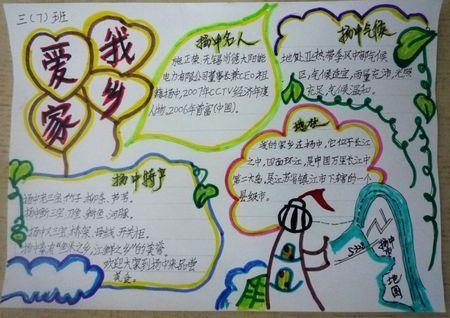 三(7)班
我
爱
家
乡
扬中名人
施正荣：无锡尚德太阳能
电力有限公司董事长兼CEO，祖
籍扬中，2007年CCTV经济年度
人物，2006年首富(中国)。
扬中气候
地处亚热带季风中部气候
区，气候适宜，雨量充沛，光照
充足，气候温和。
地处
我的家乡在扬中，它位于长江
之中，四面环江，是中国万里长江中
第二大岛，是江苏省镇江市下辖的一个
县级市。
扬中特产
扬中老三宝：竹子、柳条、芦苇。
扬中新三宝：刀鱼、鲥鱼、河豚。
扬中大三宝：桥架、母线、开关柜。
扬中素有"鱼米之乡，江鲜之乡"的美誉。
欢迎大家到扬中来品尝
美食。
扬中
地图